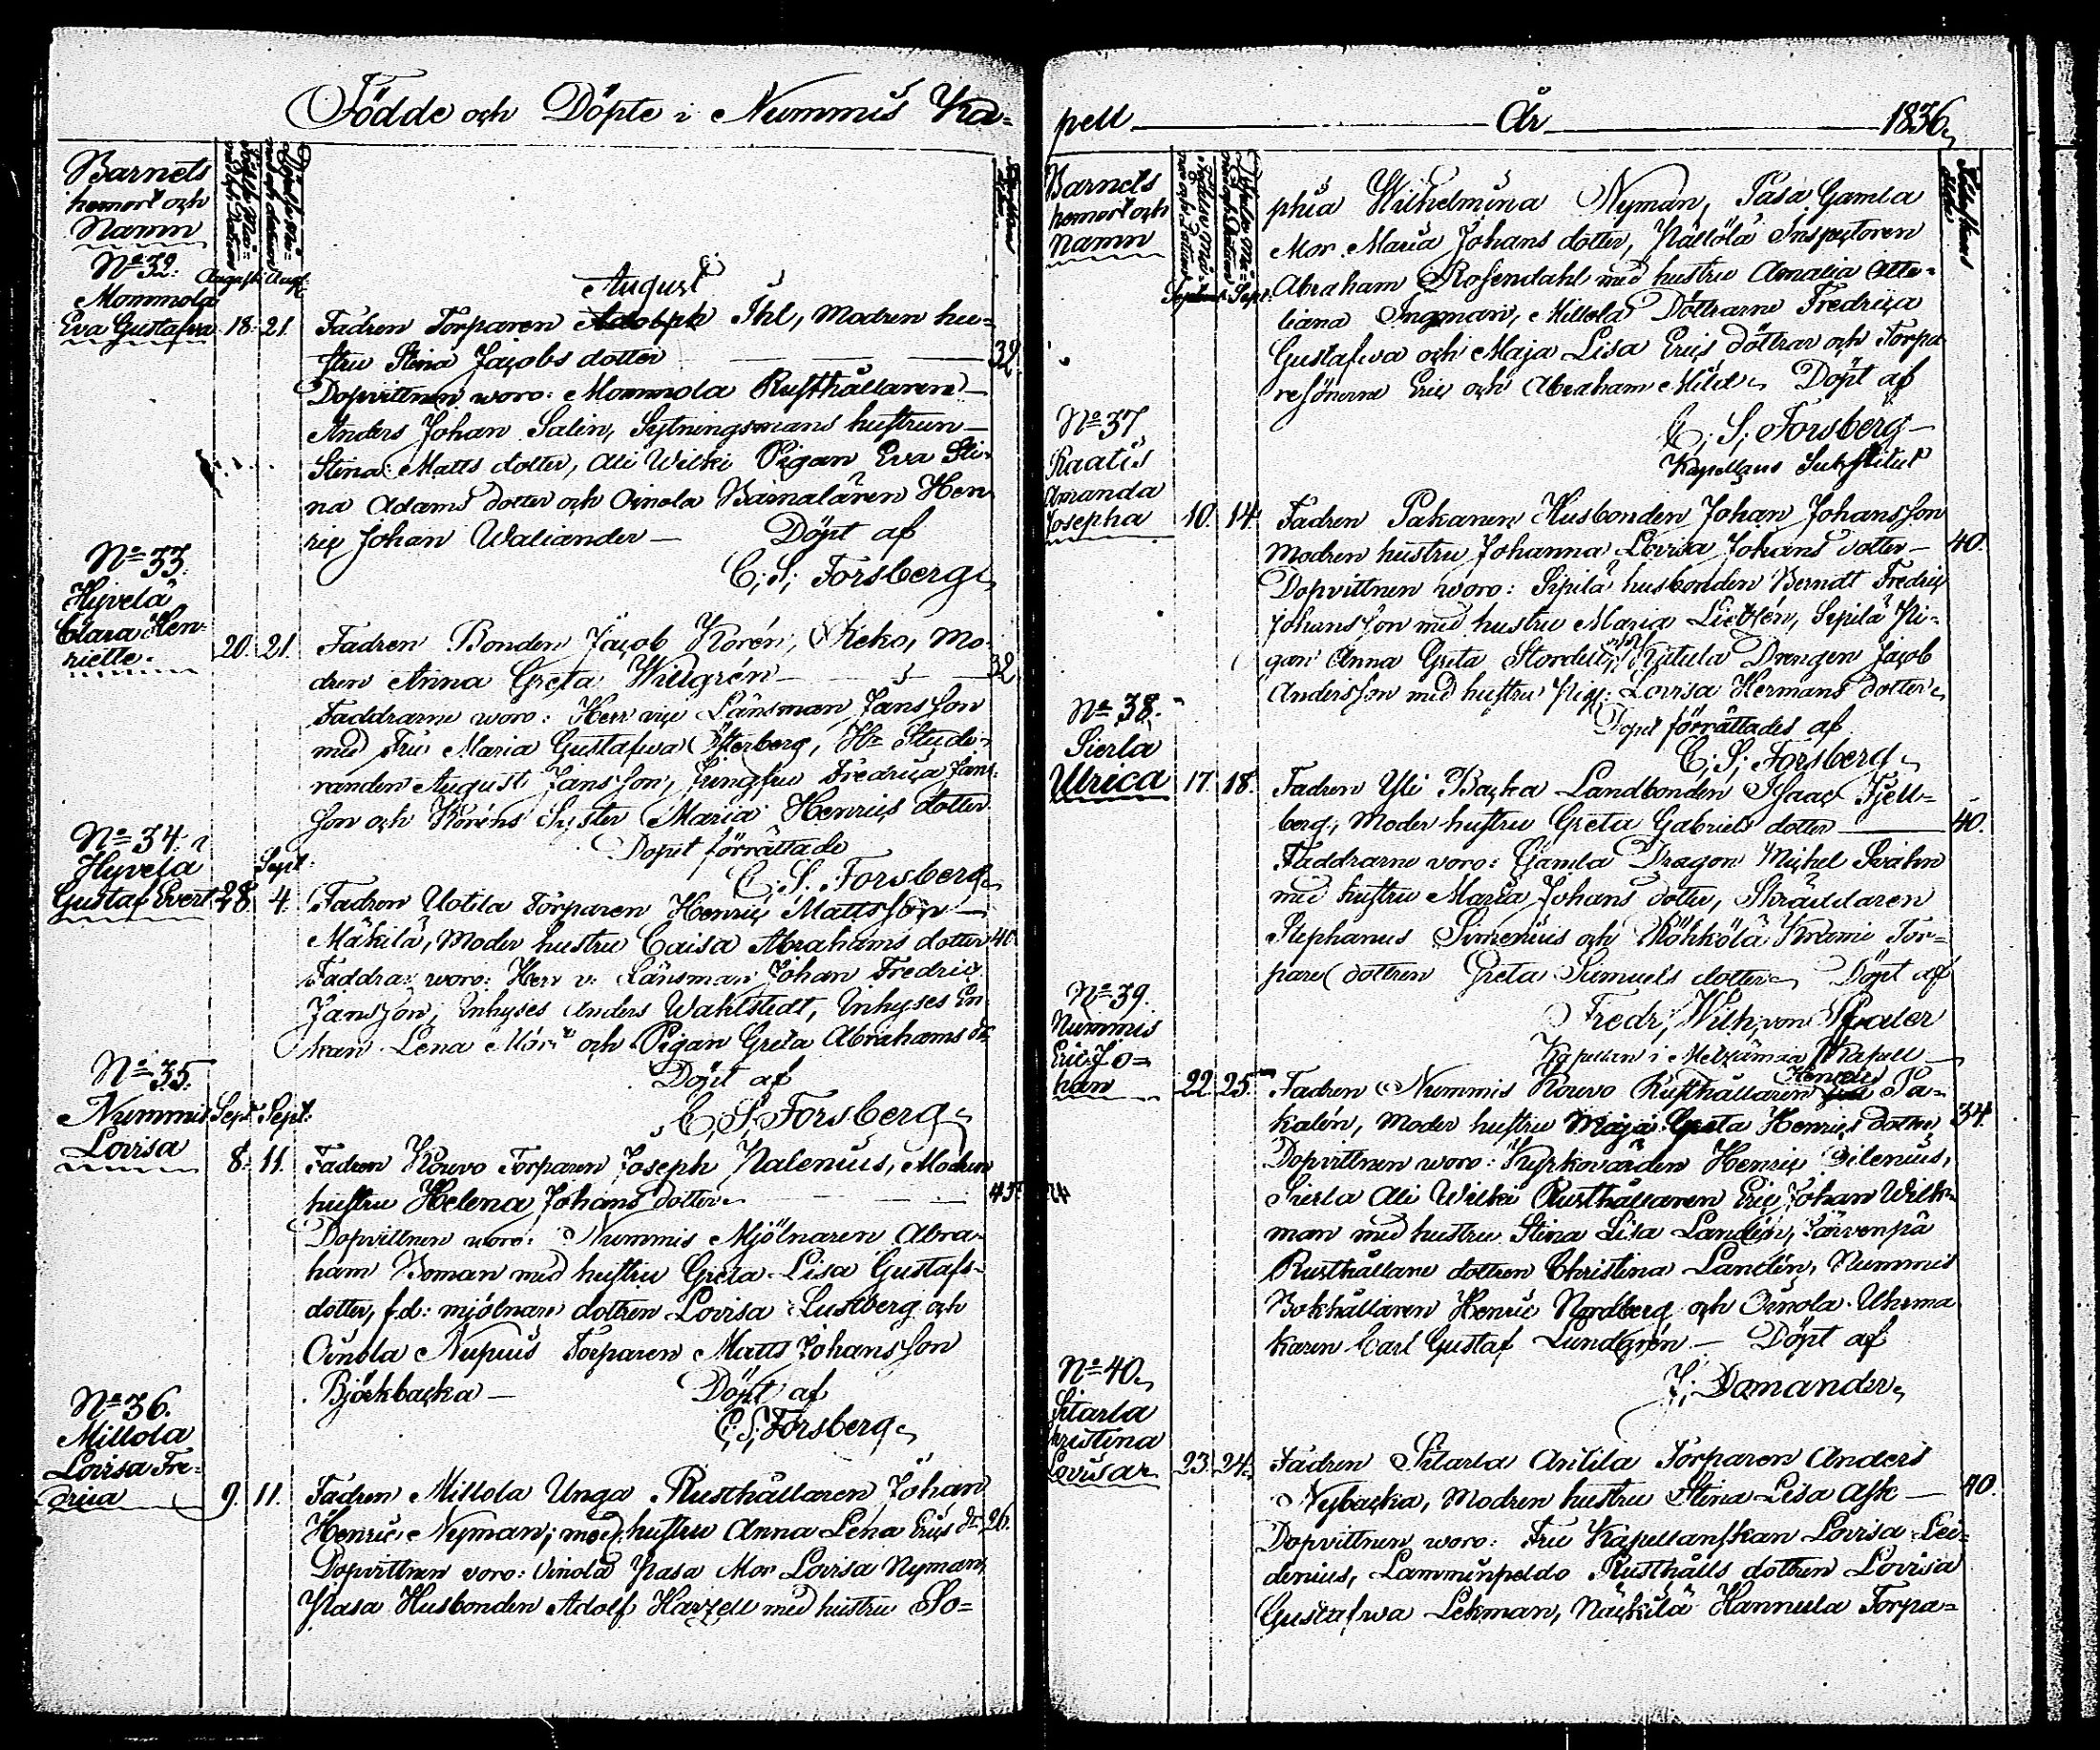 Födde och Döpte i Nummis Ka=
Barnets
hemort och
Namn
August: Aug:
No 32.
Mommola
Eva Gustafva 18. 21.
August
Fadren Torparen Adolph Ihl, Modren hu=
stru Stina Jacobs dotter 32
Dopvittnen woro: Mommola Rusthållaren
Anders Johan Salin, Sytningsmans hustrun
Stina Matts dotter, Ali Wilki Pigan Eva Sti=
na Adams dotter och Oinola Barnaläraren Hen
ric Johan Waliander Döpt af
C: S: Forsberg
No 33.
Hyvelä
Clara Hen=
riette. 20. 21.
Fadren Bonden Jacob Korén, Keko, Mo=
dren Anna Greta Willgrén 32
Faddrarne woro: Herr vice Länsman Jansson
med Fru Maria Gustafva Österberg, Hr Stude=
randen August Jansson, Jungfru Fredrica Jans=
son och Koréns Syster Maria Henrics dotter
Dopet förrättade
C: S. Forsberg
No 34.
Hyvelä
Gustaf Evert. 28. Sept: 4.
Fadren Uotila Torparen Henric Mattsson
Mäkilä, Moder hustru Caisa Abrahams dotter 40
Faddrar woro: Herr v: Länsman Johan Fredric
Jansson, Inhyses Anders Wahlstedt, Inhyses En
kan Lena och Pigan Greta Abrahams dr
Döpt af
C. S. Forsberg
No 35.
Nummis Sept: Sept:
Lovisa 8. 11.
Fadren Kouvo Torparen Joseph Nalenius, Modren
hustru Helena Johans dotter 43
Dopvittnen woro: Nummis Mjölnaren Abra=
ham Boman med hustru Greta Lisa Gustafs=
dotter, f.d: mjölnare dottren Lovisa Lustberg och
Oinola Nupuis Torparen Matts Johansson
Björkbacka Döpt af
C: S: Forsberg
No 36.
Millola
Lovisa Fre=
drica 9. 11.
Fadren Millola Unga Rusthållaren Johan
Henric Nyman, med hustru Anna Lena Erics dr 26.
Dopvittnen woro: Oinola Pasa Mor Lovisa Nyman,
Pasa Husbonden Adolf Harzell med hustru So=
pell År 1836
Barnets
hemort och
Namn
Septemb: Sept:
phia Wilhelmina Nyman, Pasa Gamla
Mor Maria Johans dotter, Källölä Inspectoren
Abraham Rosendahl med hustru Amalia Atte=
liana Ingman, Millola Döttrarne Fredrica
Gustafva och Maja Lisa Erics döttrar och Torpa
resönerne Eric och Abraham Mild. Döpt af
C: S: Forsberg
Kapellans Substitut
No 37
Raatis
Amanda
Josepha 10. 14.
Fadren Pakanen Husbonden Johan Johansson
Modren hustru Johanna Lovisa Johans dotter 40.
Dopvittnen woro: Sipilä husbonden Berndt Fredric
Johansson med hustru Maria Lietzén, Sipilä Pi=
gan Anna Greta Stordell, och Kutula Drengen Jacob
Andersson med hustru Pig: Lovisa Hermans dotter
Dopet förrättades af
C: S: Forsberg
No 38.
Sierla
Ulrica 17. 18.
Fadren Yli Backa Landbonden Isaac Fjell=
berg, Moder hustru Greta Gabriels dotter 40.
Faddrarne voro: Gamla Dragon Michel Svahn
med hustru Maria Johans dotter, Skräddaren
Stephanus Simenius och Röhkölä Krami Tor=
pare dottren Greta Samuels dotter Döpt af
Fredr: Wilh: von Pfaler
Kapellan i Kapell
No 39.
Nummis
Eric Jo=
han 22 25.
Fadren Nummis Kouvo Rusthållaren Henric Pa=
kalén, Moder hustru Maja Greta Henrics dotter 34.
Dopvittnen woro: Kyrkovärden Henric Silenius,
Sierla Ali Wilki Rusthållaren Eric Johan Wilk=
man med hustru Stina Lisa Landén, Järvenpä
Rusthållare dottren Christina Landén, Nummis
Bokhållaren Henric Nordberg och Oinola Uhrma
karen Carl Gustaf Lundgrén Döpt af
J: Domander
No 40
Sitarla
Kristina
Lovisa 23. 24.
Fadren Sitarla Anttila Torparen Anders
Nybacka, Modren hustru Stina Lisa Ask 40.
Dopvittnen woro: Fru Kapellanskan Lovisa Lei=
denius, Lamminpeldo Rusthålls dottren Lovisa
Gustafwa Lekman, Näckilä Hannula Torpa=